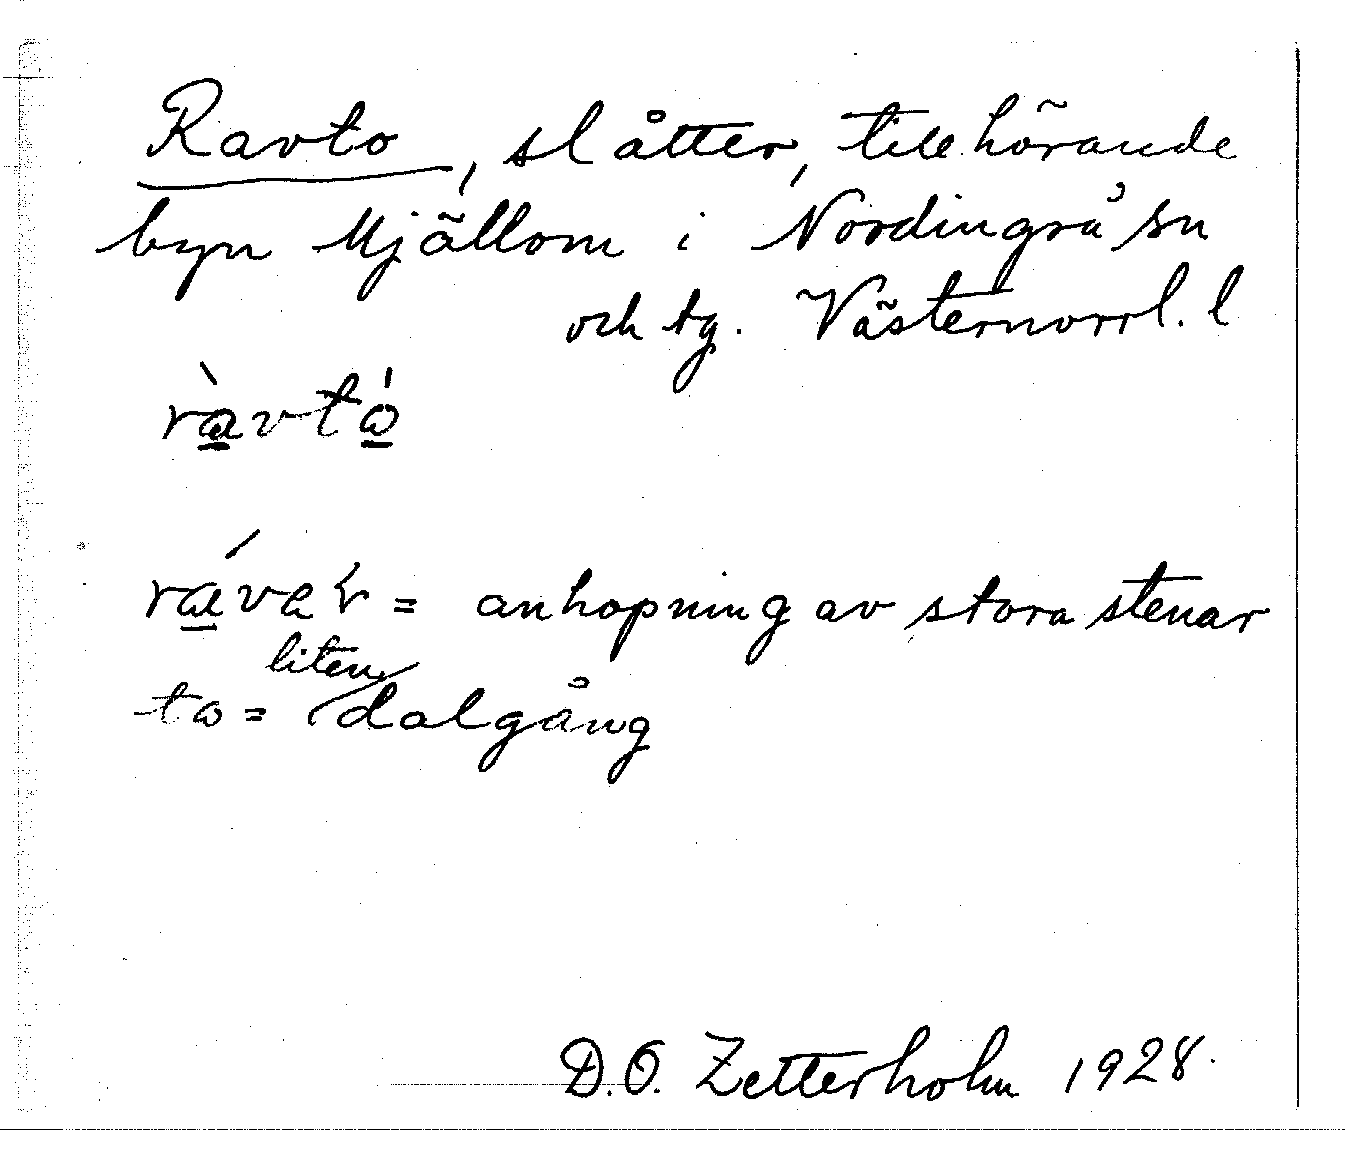 Ravto, slåtter, tillhörande
byn Mjällom i Nordingrå sn
och tg. Västernorrl. l
ràvtó
ráver = anhopning av stora stenar
to = liten dalgång
D.O. Zetterholm 1928.